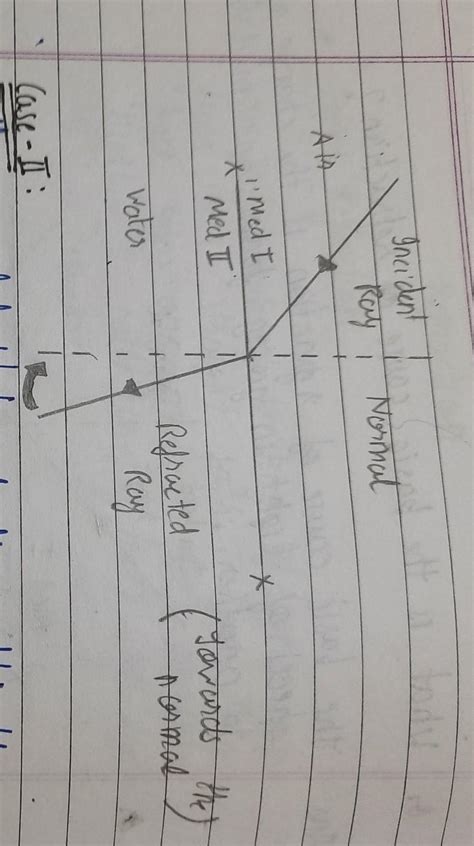 Incident
Ray
Normal
Air
Med I
Med II
x
x
Water
Refracted
Ray
(Towards the
normal)
Case-II: